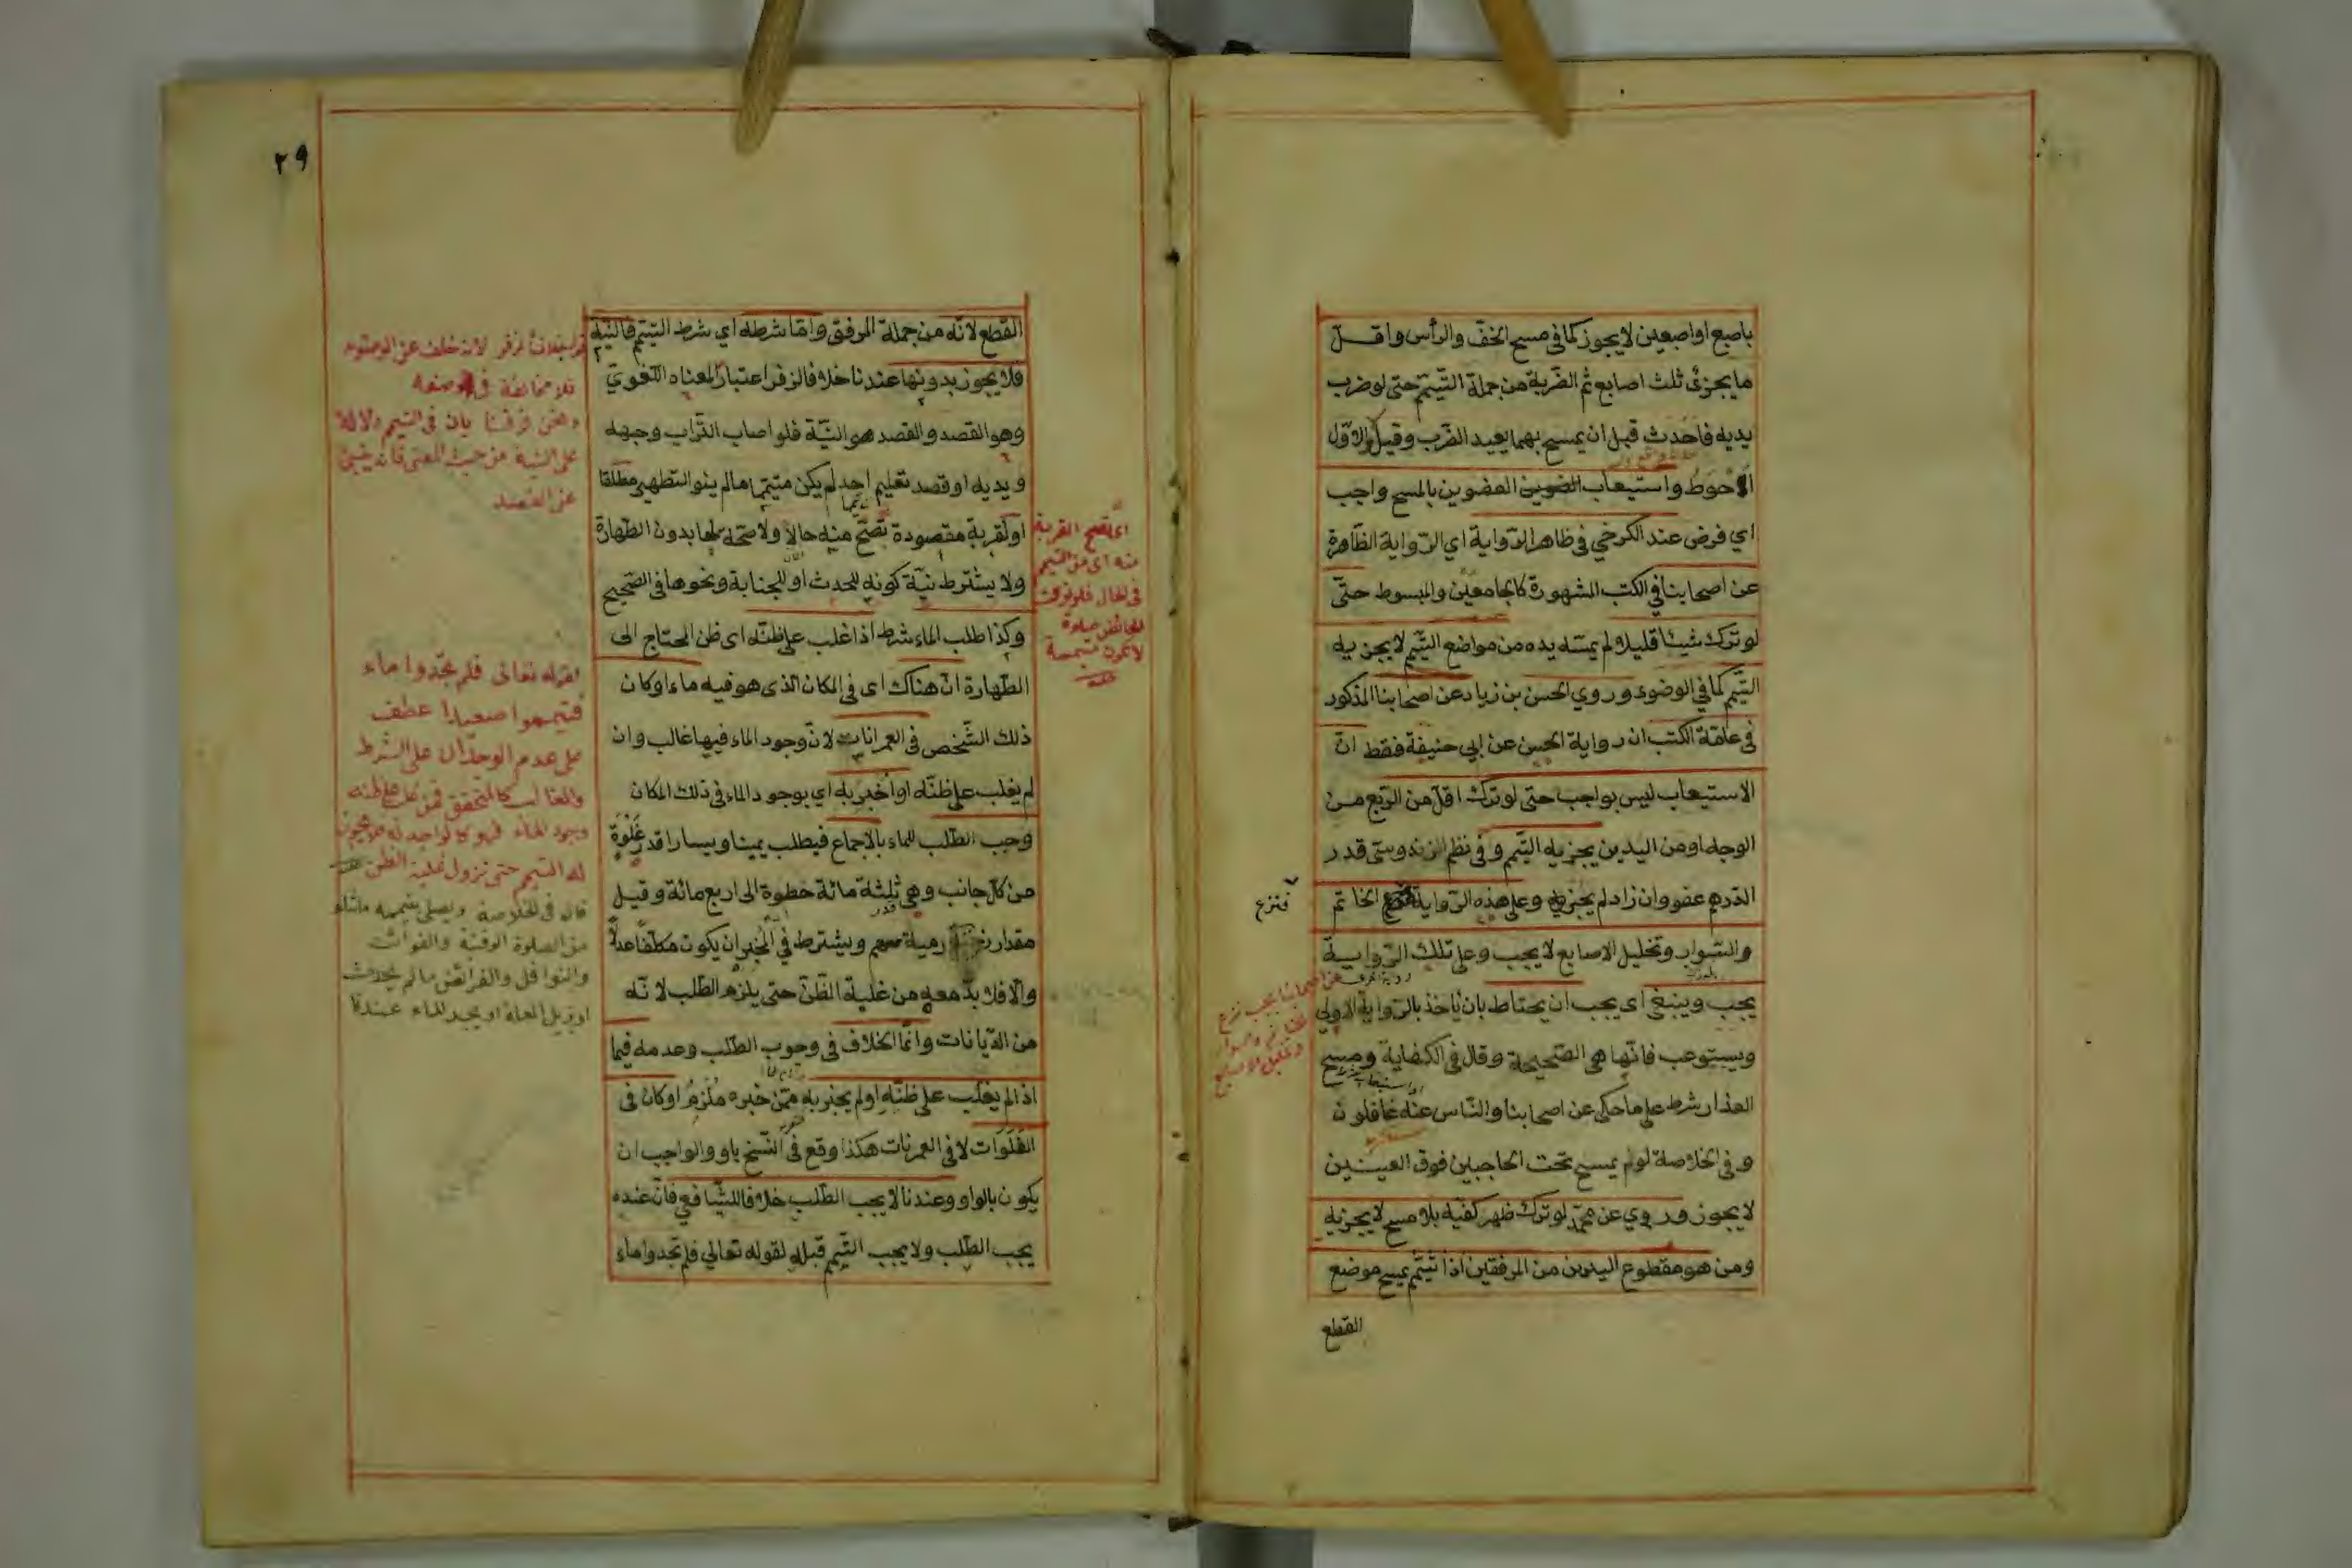 باصبع او اصبعين لا يجوز كما في مسح الخف والرأس واقلّ
ما يجزئ ثلث اصابع ثم الضربة من جملة التيمّم حتى لو ضرب
يديه فاحدث قبل ان يمسح بهما يعيد الضرب وقيل والاوّل
الاحوط واستيعاب العضوين بالمسح واجب
اي فرض عند الكرخي في ظاهر الرّواية اي الرّواية الظاهرة
عن اصحابنا في الكتب المشهورة كالجامعين والمبسوط حتّى
لو ترك شيئا قليلا لم يمسّه يده من مواضع التيمم لا يجزيه
التيّمم كما في الوضوء وروي الحسن بن زياد عن اصحابنا المذكور
في عامّة الكتب ان رواية الحسن عن ابي حنيفة فقط انّ
الاستيعاب ليس بواجب حتى لو ترك اقلّ من الرّبع من
الوجه او من اليدين يجزيه التيّمم وفي نظم الزندوستى قدر
الدّرهم عفو وان زاد لم يجزيه وعلى هذه الرّواية الخاتم
فنزع
والسّوار وتخليل الاصابع لا يجب وعلى تلك الرّواية
يجب وينبغي اى يجب ان يحتاط بان ياخذ بالرّواية الاولى
ويستوعب فانّها هي الصّحيحة وقال في الكفاية ومسح
العذار شرط على ما حكى عن اصحابنا والنّاس عنه غافلون
وفي الخلاصة لو لم يمسح تحت الحاجبين فوق العينين
لا يجوز وروي عن محمّد لو ترك ظهر كفّيه بلا مسح لا يجزيه
ومن هو مقطوع اليدين من المرفقين اذا تيمّم يمسح موضع
القطع
٢٩
القطع لانّه من جملة المرفق وامّا شرطه اي شرط التيّمم فالنيّة
فلا يجوز بدونها عندنا خلافا لزفر اعتبارا لمعناه اللّغويّ
وهو القصد والقصد هو النيّة فلو اصاب التّراب وجهه
ويديه او قصد تعليم احد لم يكن متيمّما ما لم ينو التطهير مطلقا
او لقربة مقصودة تصحّ منه حالا ولا صحّة لها بدون الطّهارة
ولا يشترط نيّة كونه للحدث او للجنابة ونحوها في الصّحيح
وكذا طلب الماء شرط اذا غلب على ظنّه اى ظن المحتاج الى
الطّهارة انّ هناك اى في المكان الذى هو فيه ماء او كان
ذلك الشّخص في العمرانات لانّ وجود الماء فيها غالب وان
لم يغلب على ظنّه او اخبر به اي بوجود الماء في ذلك المكان
وجب الطّلب للماء بالاجماع فيطلب يمينا ويسارا قدر غلوة
من كلّ جانب وهي ثلثة مائة خطوة الى اربع مائة وقيل
مقدار رمية سهم ويشترط في المخبر ان يكون مكلّفا عدلا
والّا فلا بدّ معه من غلبة الظّنّ حتى يلزم الطّلب لانّه
من الدّيانات وانّما الخلاف في وجوب الطّلب وعدمه فيما
اذا لم يغلب على ظنّه او لم يخبر به ممّن خبره ملزم او كان في
الفلوات لا في العمرنات هكذا وقع في النّسخ باو والواجب ان
يكون بالواو وعندنا لا يجب الطّلب خلافا للشّافعي فانّ عنده
يجب الطّلب ولا يجب التيّمم قبله لقوله تعالى فلم تجدوا ماء
اى تصح القربة
منه اى من التيمم
في الحال
لقوله تعالى فلم تجدوا ماء
فتيمموا صعيدا عطف
على عدم الوجدان على الشرط
والغالب كالمتحقق
له التيمم حتى تزول غلبة الظن
قال في الخلاصة ويصلى بتيممه ماشاء
من الصلوة الوقتية والفوائت
والنوافل والفرائض ما لم يحدث